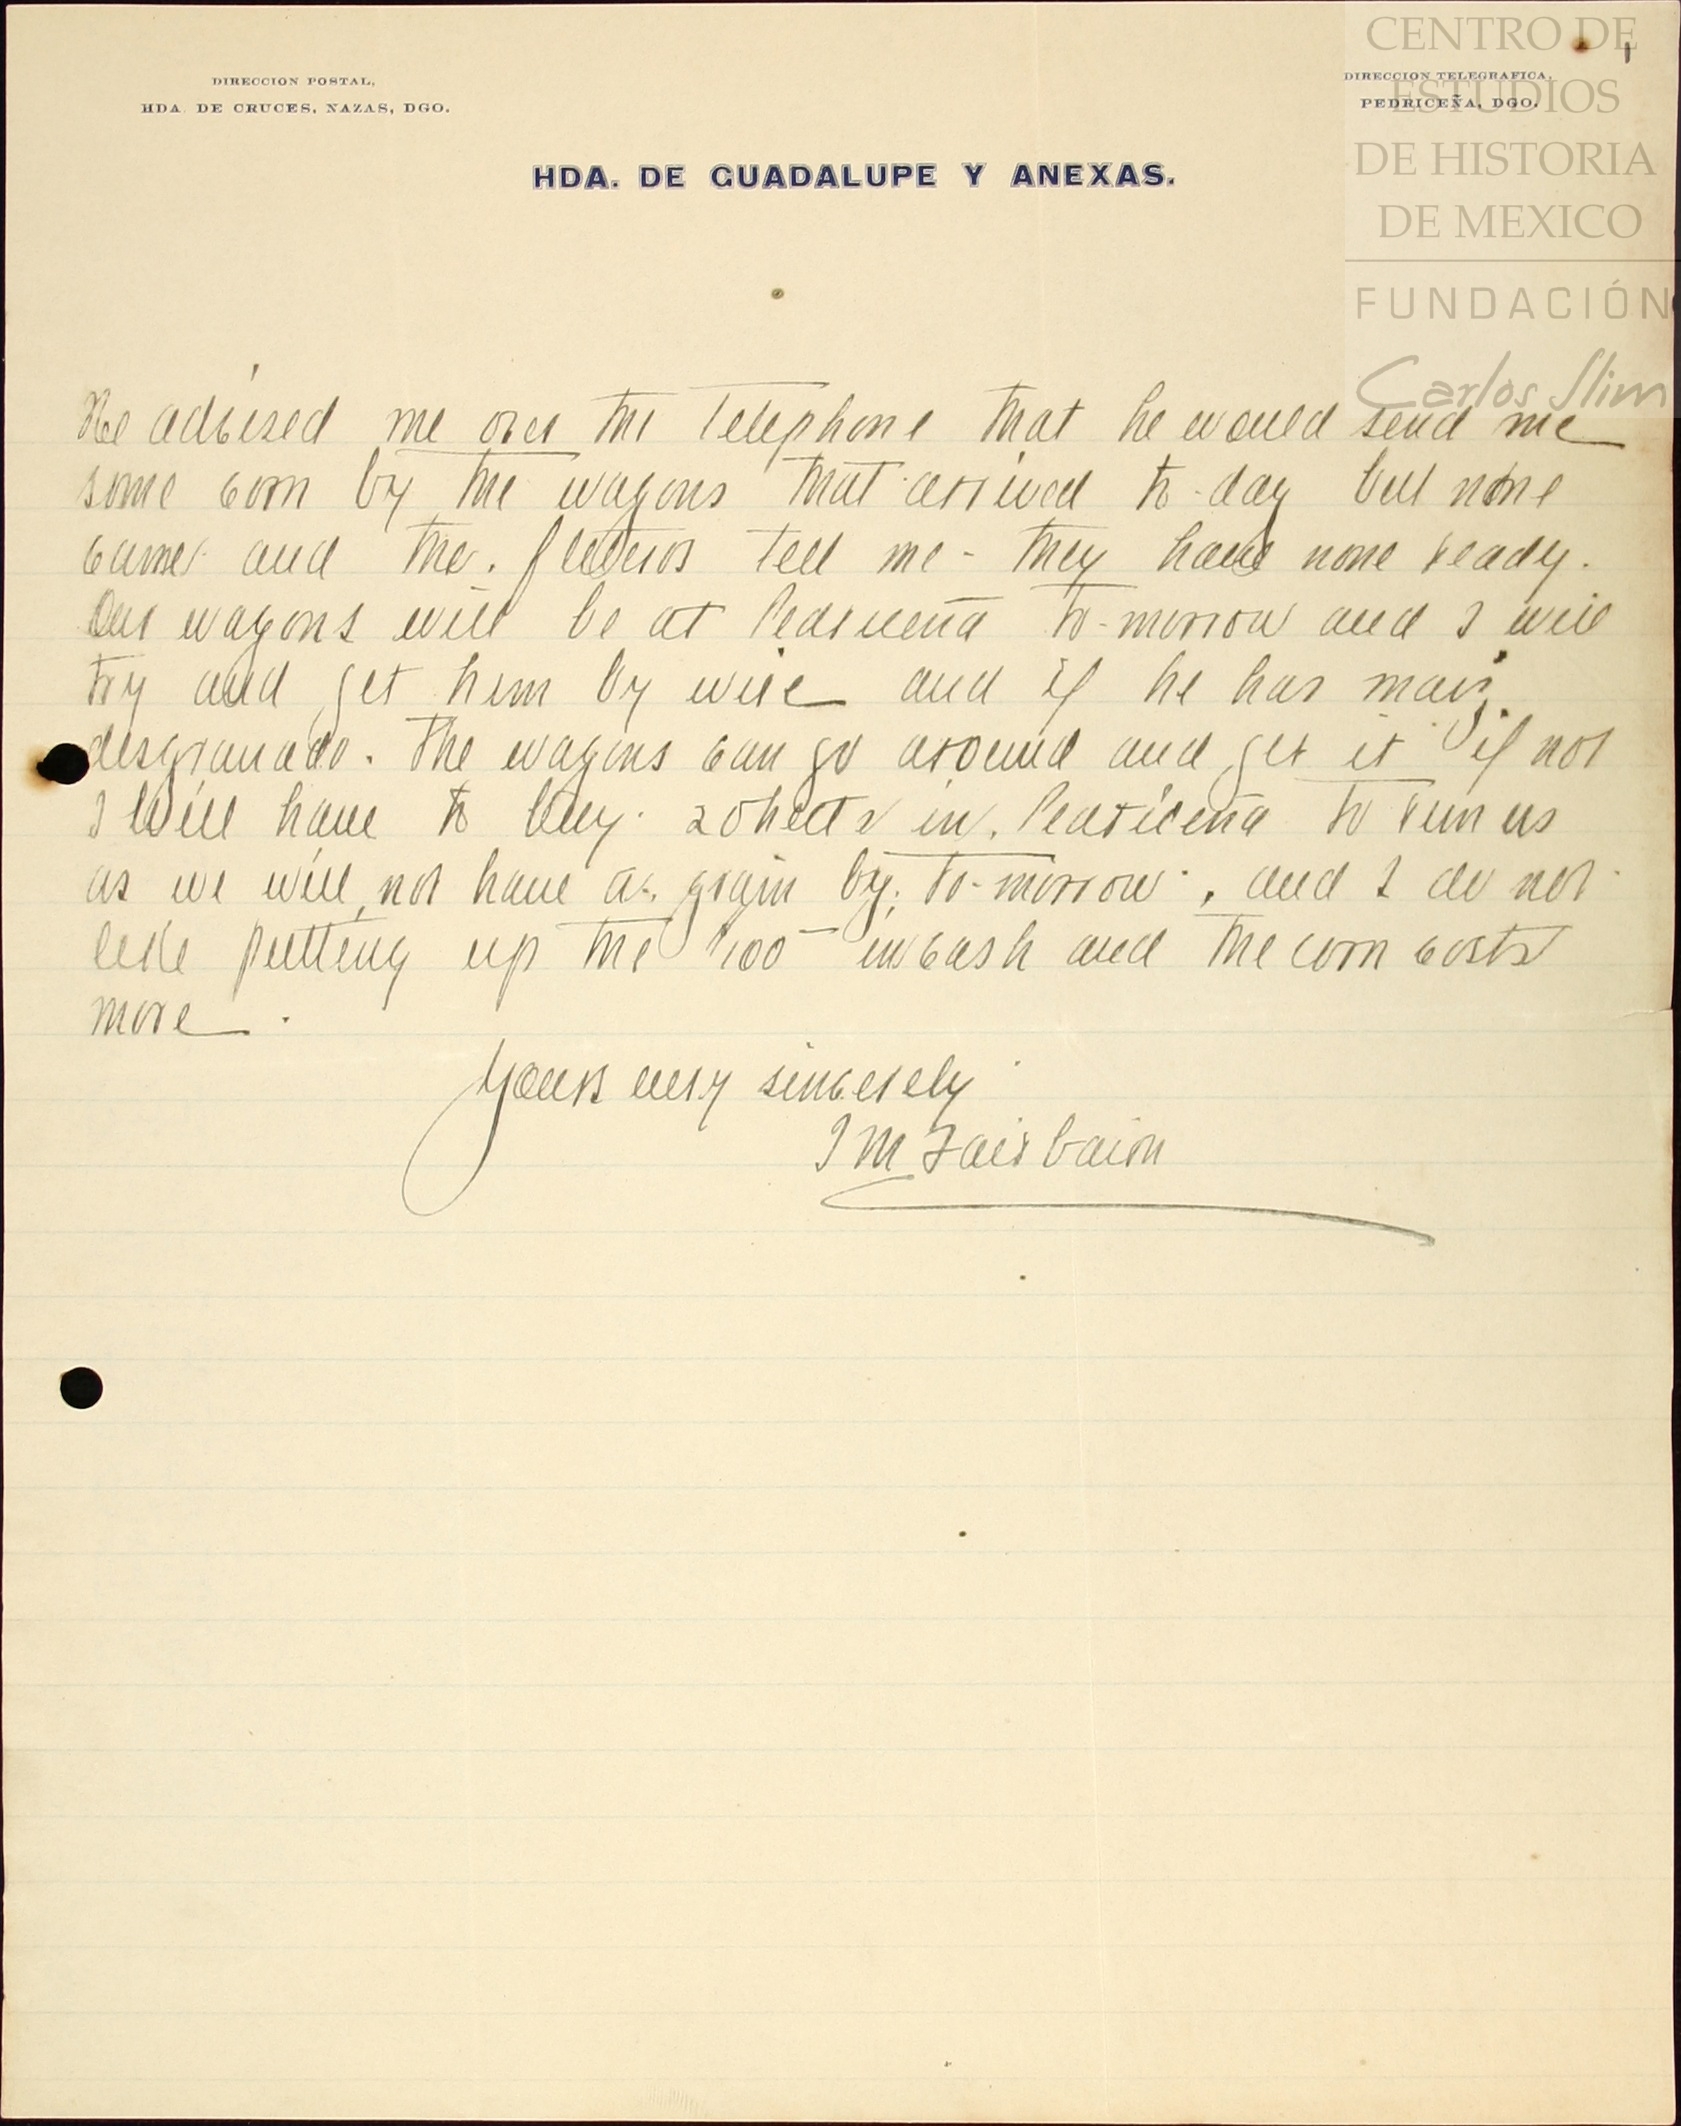 CENTRO DE
ESTUDIOS
DE HISTORIA
DE MEXICO
FUNDACIÓN
Carlos Slim
DIRECCION POSTAL,
HDA. DE CRUCES, NAZAS, DGO.
DIRECCION TELEGRAFICA,
PEDRICEÑA, DGO.
HDA. DE GUADALUPE Y ANEXAS.
He advised me over the telephone that he would send me
some corn by the wagons that arrived to-day but none
came and the fleteros tell me - they have none ready.
Our wagons will be at Pedriceña to-morrow and I will
try and get him by wire and if he has maiz
desgranado. The wagons can go around and get it if not
I will have to buy 20 hects in Pedriceña to run us
as we will not have a grain by to-morrow, and I do not
like putting up the $100 in cash and the corn costs
more.
Yours very sincerely
J M Fairbairn